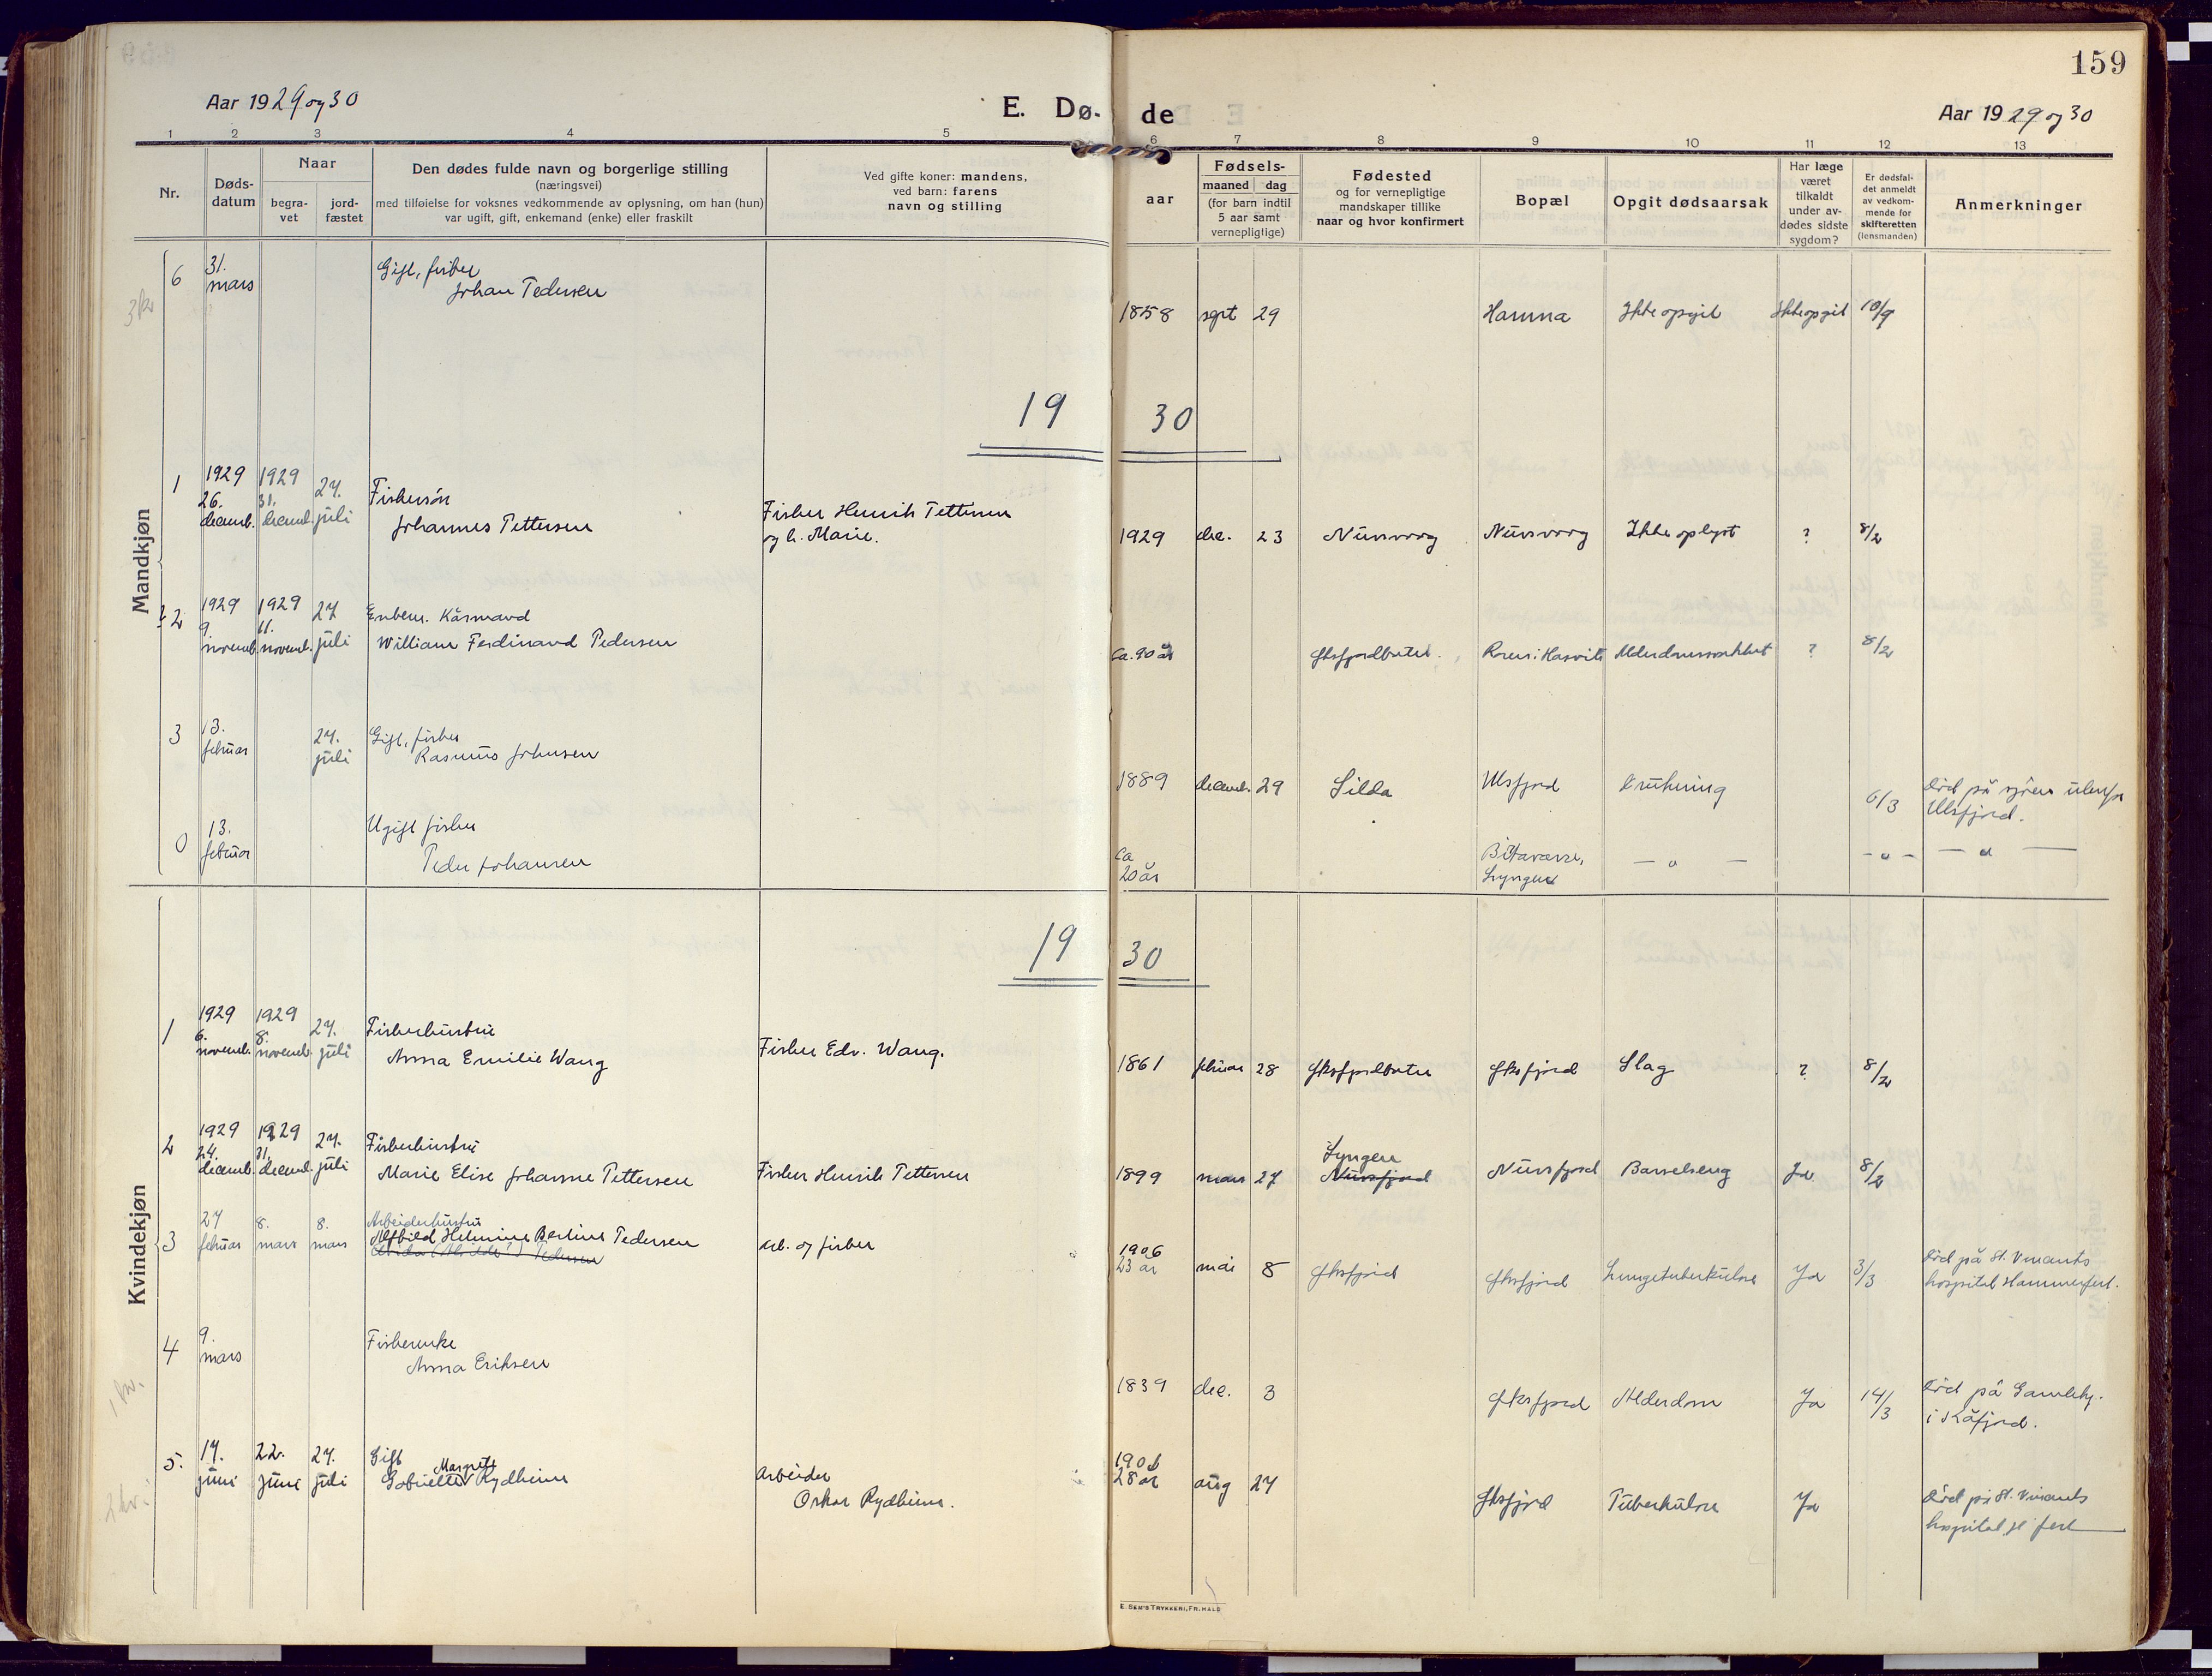 159
Aar 1929 og 30
E. Dø-
de
Aar 1929 og 30
1 2 3 4 5 6 7 8 9 10 11 12 13
Nr.
Døds-
datum
Naar
begra-
vet
jord-
fæstet
Den dødes fulde navn og borgerlige stilling
(næringsvei)
med tilføielse for voksnes vedkommende av oplysning, om han (hun)
var ugift, gift, enkemand (enke) eller fraskilt
Ved gifte koner: mandens,
ved barn: farens
navn og stilling
Fødsels-
aar
maaned dag
(for barn indtil
5 aar samt
vernepligtige)
Fødested
og for vernepligtige
mandskaper tillike
naar og hvor konfirmert
Bopæl
Opgit dødsaarsak
Har læge
været
tilkaldt
under av-
dødes sidste
sygdom?
Er dødsfal-
det anmeldt
av vedkom-
mende for
skifteretten
(lensmanden)
Anmerkninger
Mandkjøn
3 kr
6
31.
mars
Gift, fisker
Johan Pedersen
1858 sept 29
Hamna
Ikke opgit
Ikke opgit
10/9
19 30
1
1929
26.
decemb.
1929
31.
decemb.
27.
juli
Fiskersön
Johannes Pettersen
Fisker Henrik Pettersen
og h. Marie.
1929 dec. 23
Nuvsvaag
Nuvsvaag
Ikke oplyst
?
8/2
2
1929
9.
novemb.
1929
11.
novemb.
27
juli
Enkem. Kårmand
William Ferdinand Pedersen
Ca. 90 år
Øksfjordbotn
Alderdomssvakhet
?
8/2
3
13.
februar
27.
juli
Gift, fisker
Rasmus Johnsen
1889 decemb. 29
Silda
Ulsfjord
Drukning
6/3
Död på sjöen utenfor
Ulsfjord.
0
13.
februar
Ugift fisker
Peder Johansen
Ca
20 år
Lyngen
— " —
- " -
— " —
19 30
Kvindekjøn
1
1929
6.
novemb.
1929
8.
novemb.
27.
juli
Fiskerhustru
Anna Emilie Wang
Fisker Edv. Wang.
1861 februar 28
Øksfjordbotn
Øksfjord
Slag
?
8/2
2
1929
24.
decemb.
1929
31.
decemb.
27.
juli
Fiskerhustru
Marie Elise Johanne Pettersen
Fisker Henrik Pettersen
1899 mars 27
Lyngen
Nuvsfjord
Nuvsfjord
Barselseng
Ja
8/2
3
27
februar
8.
mars
8.
mars
Arbeiderhustru
Alfhild Helmine Berline Pedersen
arb. og fisker
1906
23 år
mai 8
Øksfjord
Øksfjord
Lungetuberkulose
Ja
3/3
Död på St. Vincents
hospital Hammerfest.
4
9.
mars
Fiskerenke
Anna Eriksen
1839 dec. 3
Øksfjord
Alderdom
Ja
14/3
Död på Gamlehj.
i Kåfjord.
1 kv.
5.
17.
juni
22.
juni
27.
juli
Gift
Margrete
Gabrielle Rydheim
Arbeider
Oskar Rydheim.
1906
28 år
aug 27
Øksfjord
Tuberkulose
Ja
Död på St. Vincents
hospital H.fest
2 kv.
E. SEM'S TRYKKERI, FR.HALD